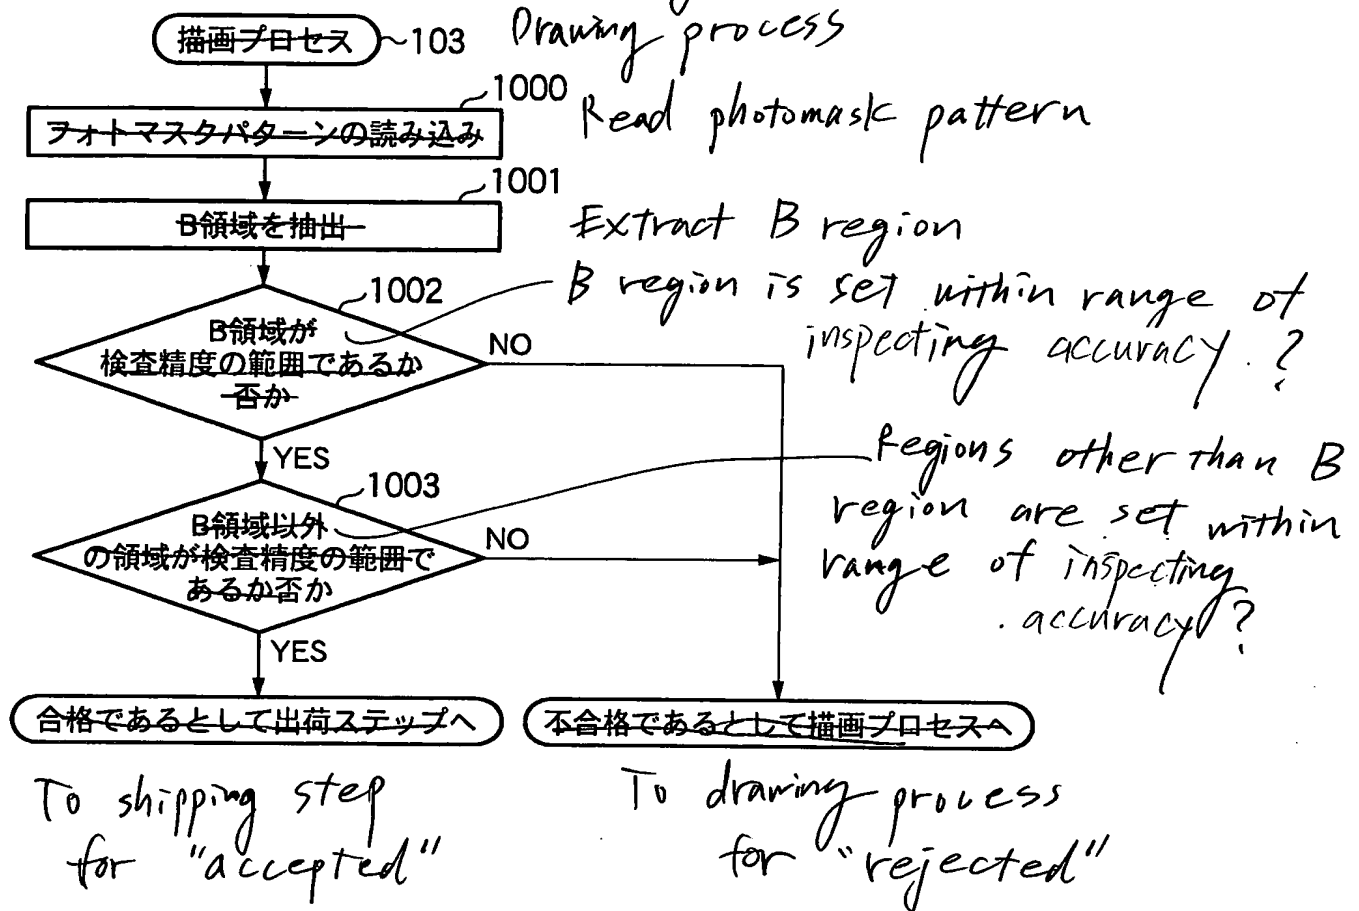 描画プロセス 103 Drawing process
1000
フォトマスクパターンの読み込み Read photomask pattern
1001
B領域を抽出 Extract B region
1002
B領域が
検査精度の範囲であるか
否か
NO
B region is set within range of
inspecting accuracy ?
YES
1003
B領域以外
の領域が検査精度の範囲で
あるか否か
NO
Regions other than B
region are set within
range of inspecting
accuracy ?
YES
合格であるとして出荷ステップへ
不合格であるとして描画プロセスへ
To shipping step
for "accepted"
To drawing process
for "rejected"